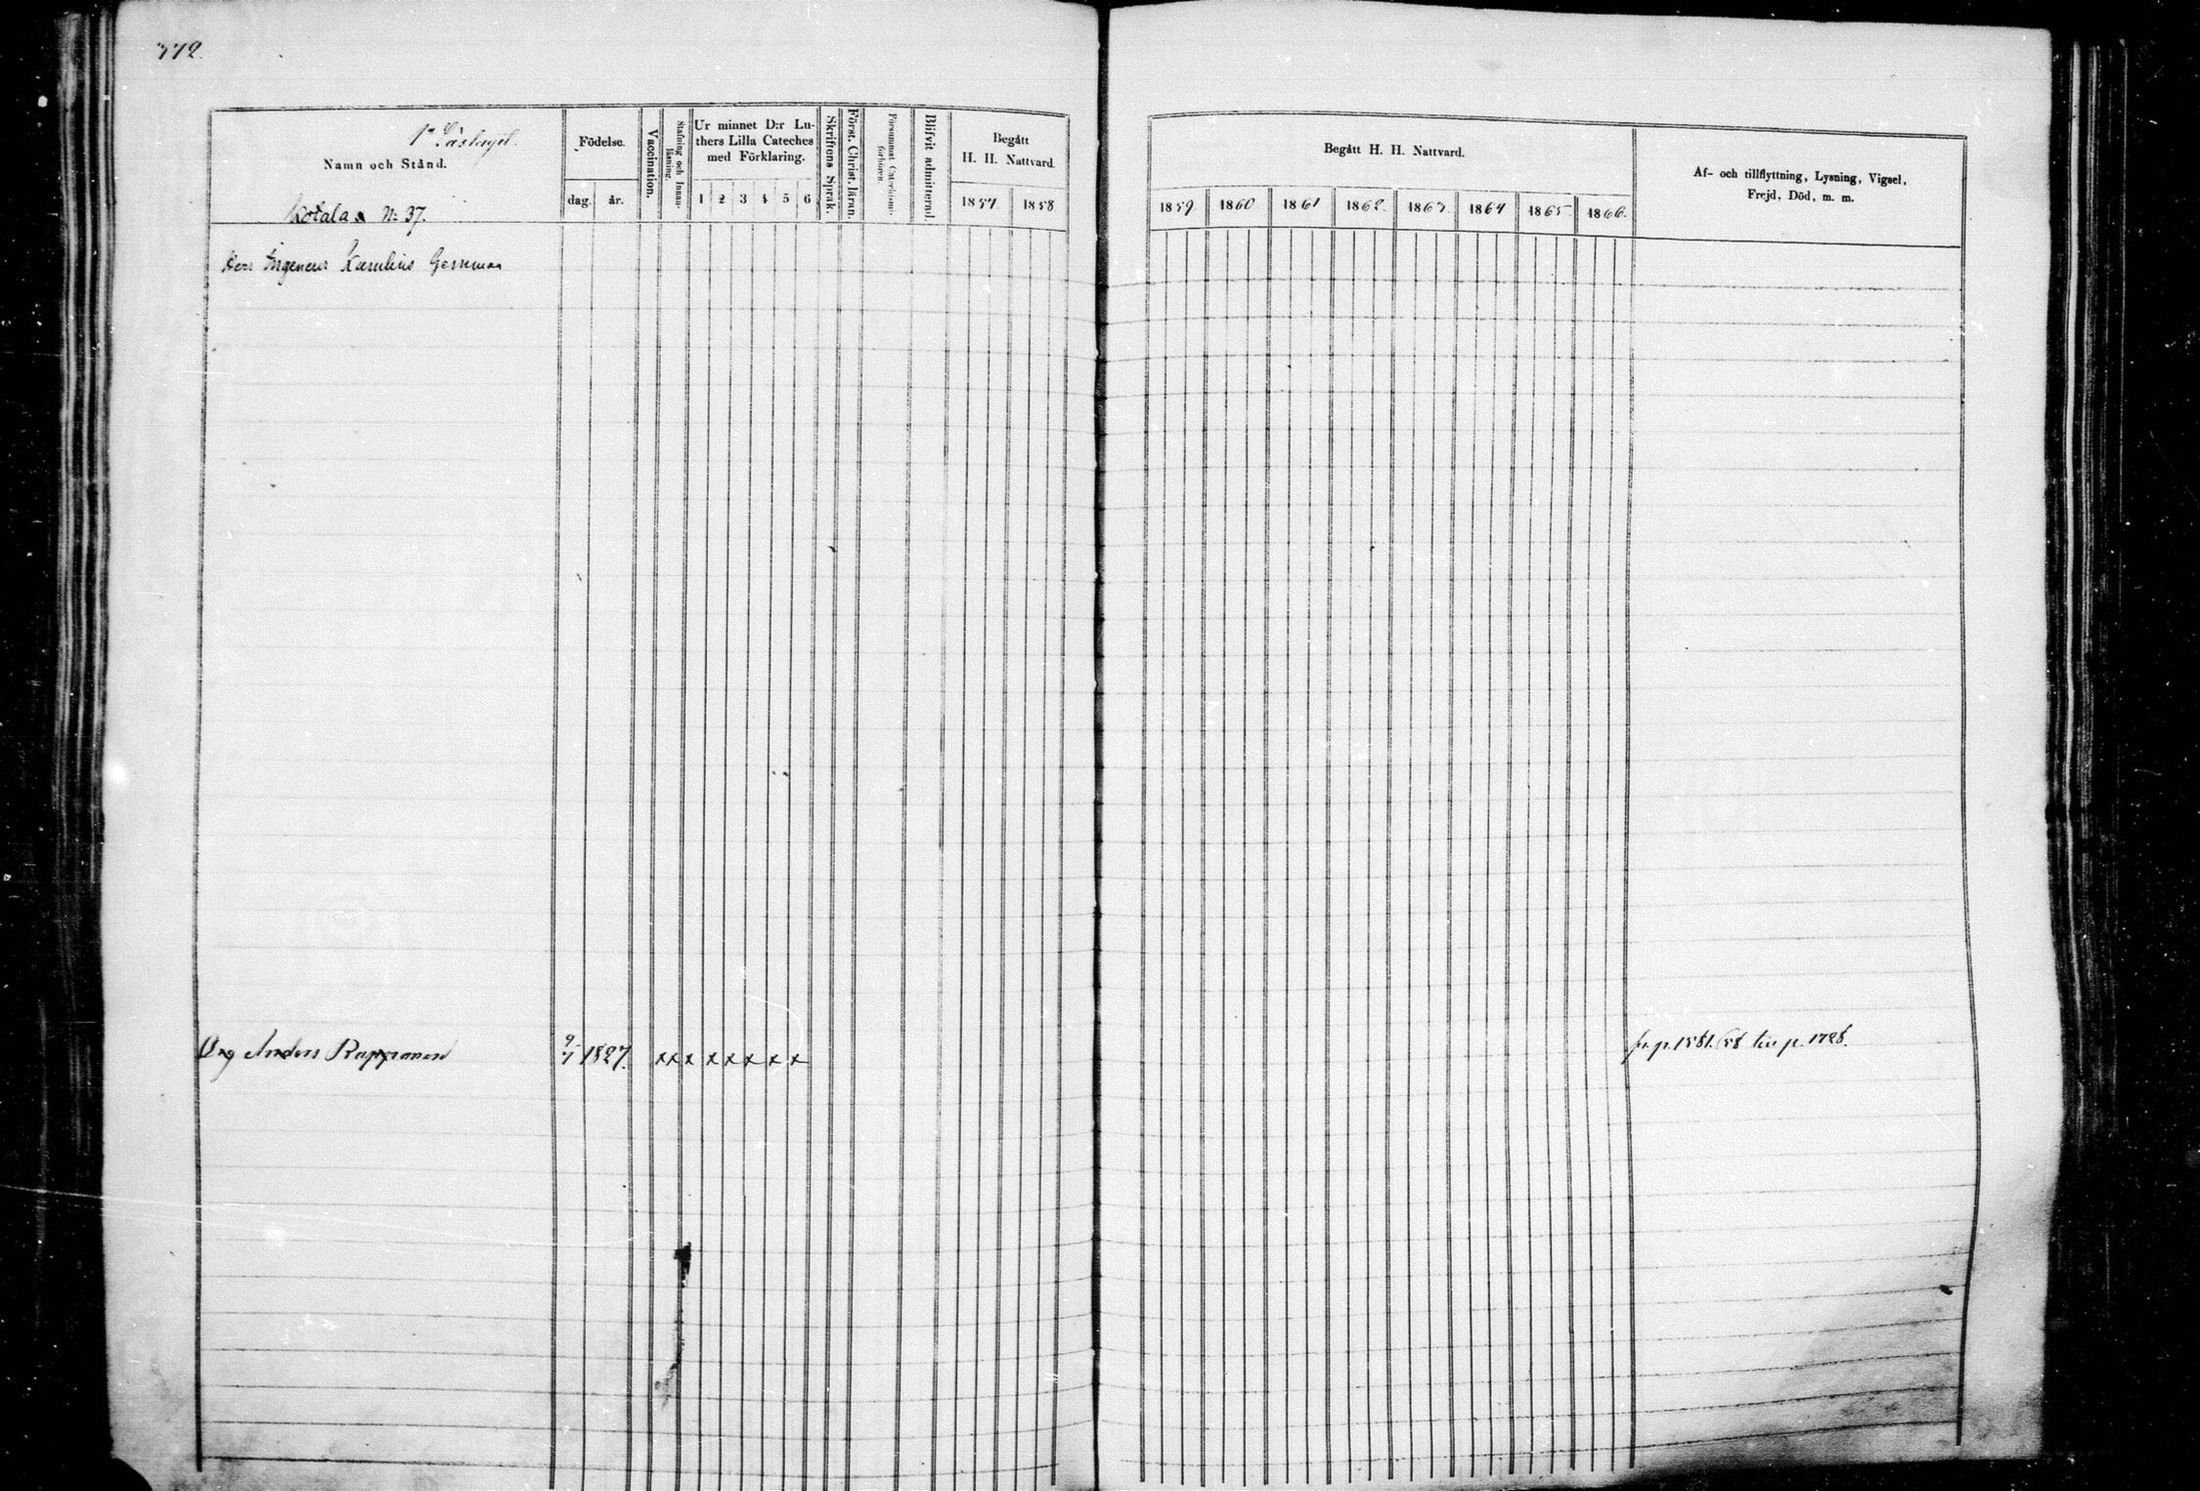 772.
1a Läslaget.
Namn och Stånd.
Kotala No 37.
Födelse.
dag. år.
Vaccination.
Stafning och Innan-
läsning.
Ur minnet D:r Lu-
thers Lilla Cateches
med Förklaring.
1 2 3 4 5 6
Skriftens Språk.
Först. Christ. läran.
Försummat Catechismi-
förhören.
Blifvit admitterad
Begått
H. H. Nattvard.
1857 1858
Begått H. H. Nattvard.
1859 1860 1861 1862. 1863. 1864 1865. 1866.
Af- och tillflyttning, Lysning, Vigsel,
Frejd, Död, m. m.
Ingeneur
Drg Anders Rapponen 9/7 1827. x x x x x x x x fr. p. 1581. 58 till p. 1728.